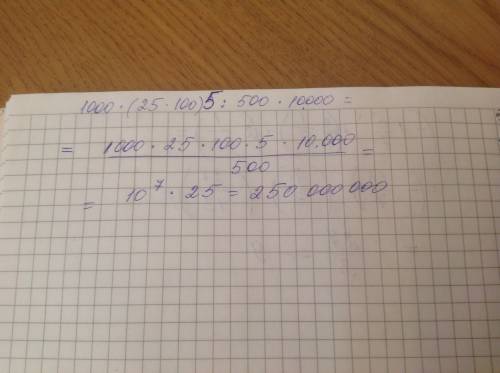 1000 · (25 · 100) 5 : 500 · 10.000 =
= 1000 · 25 · 100 · 5 · 10.000 =
500
= 10⁷ · 25 = 250 000 000